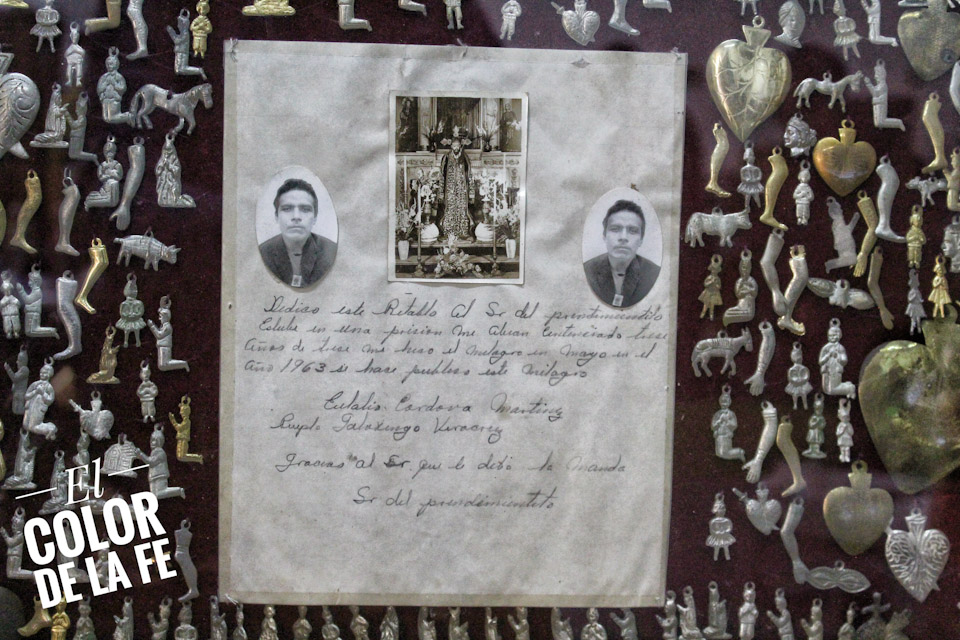 Dedico este Retablo Al Sr del prendimientito
Estube en una prision me Avian Centenciado trese
Años de trese me hiso el milagro en Mayo en el
Año 1963 se hase publico este Milagro
Eulalio Cordova Martinez
Veracruz
Gracias al Sr que le dejo la Manda
Sr del prendimientito
El
COLOR
DE LA FE